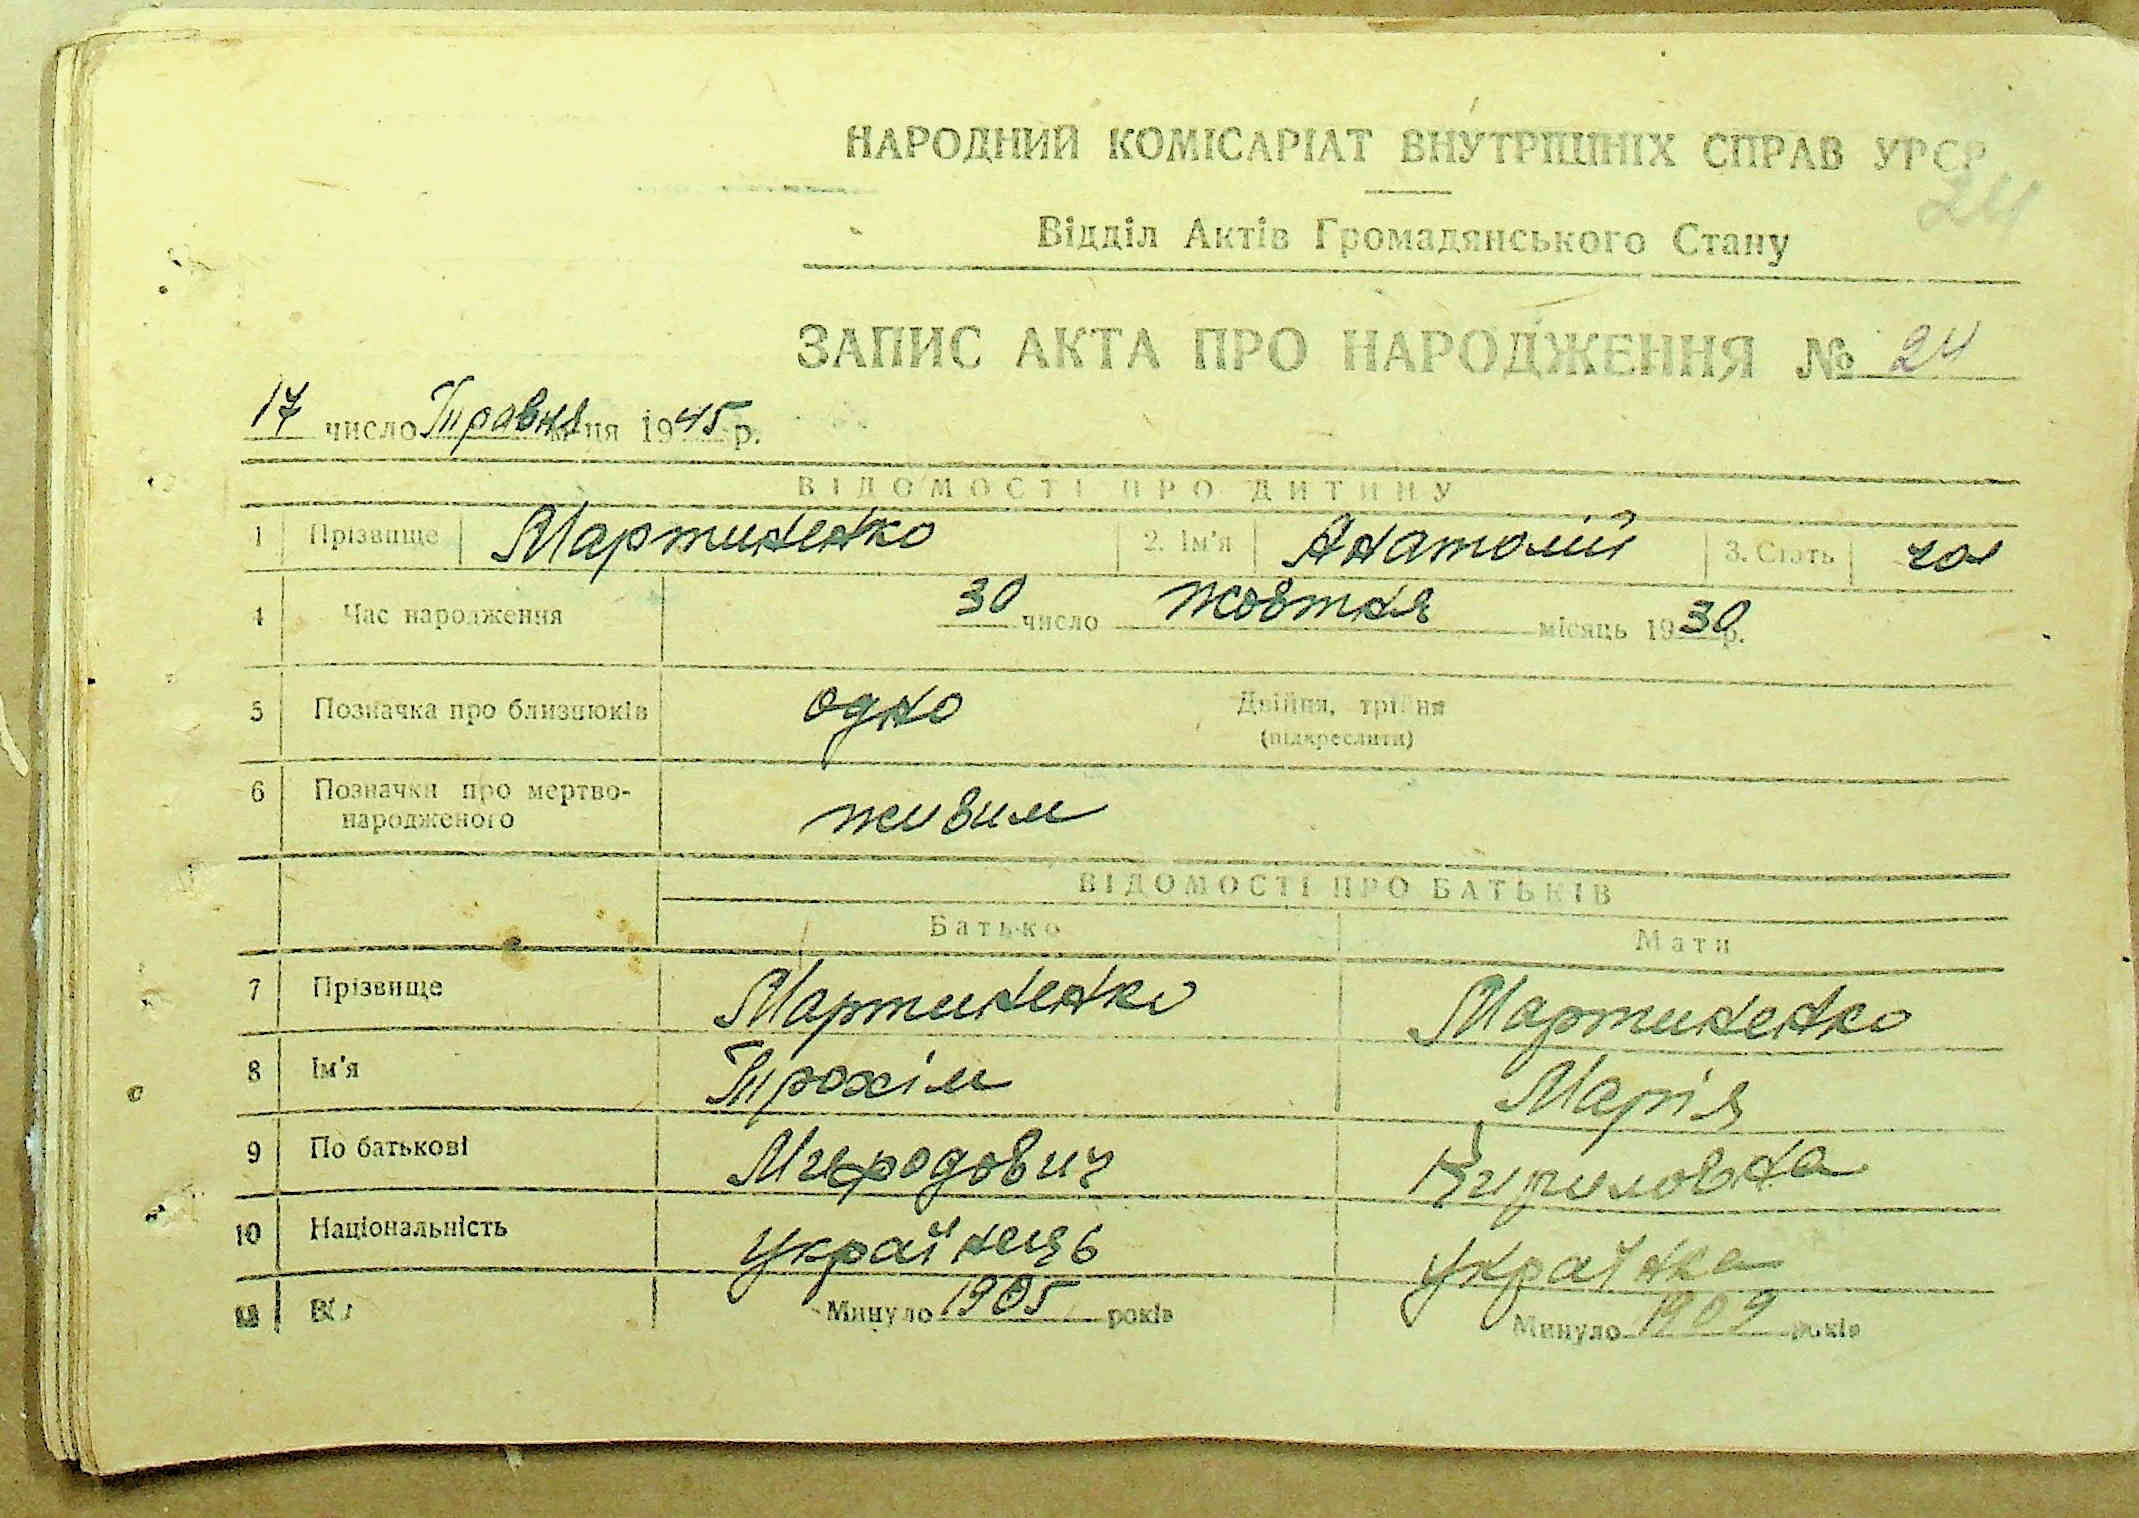 НАРОДНИЙ КОМІСАРІАТ ВНУТРІШНІХ СПРАВ УРСР
24
Відділ Актів Громадянського Стану
ЗАПИС АКТА ПРО НАРОДЖЕННЯ № 24
17 число Травня м-ця 1945 р.
ВІДОМОСТІ ПРО ДИТИНУ
1 Прізвище Мартиненко 2. Ім'я Анатолій 3. Стать чол
4 Час народження 30 число жовтня місяць 1930 р.
5 Позначка про близнюків одно Двійня, трійня
(підкреслити)
6 Позначки про мертво-
народженого живим
ВІДОМОСТІ ПРО БАТЬКІВ
Батько Мати
7 Прізвище Мартиненко Мартиненко
8 Ім'я Трохім Марія
9 По батькові Кириловна
10 Національність українець українка
Минуло 1905 років Минуло 1909 років